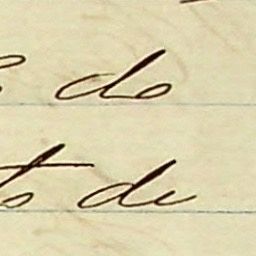 do
to de